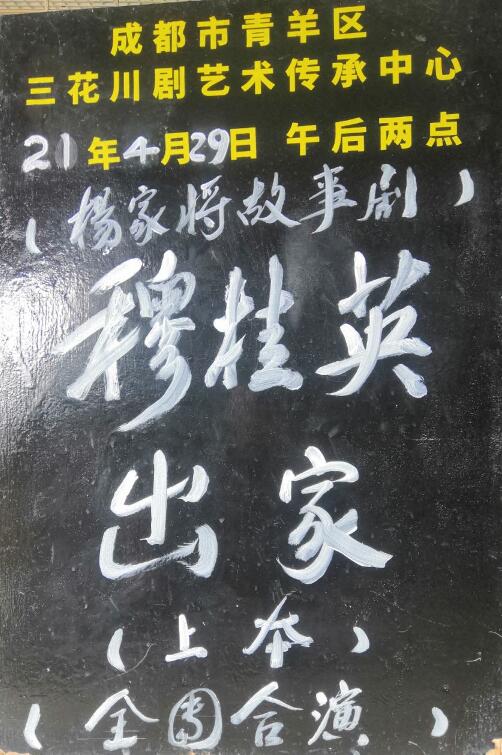 成都市青羊区
三花川剧艺术传承中心
21年4月29日 午后两点
(楊家将故事剧)
穆桂英
出家
(上本)
(全团合演)